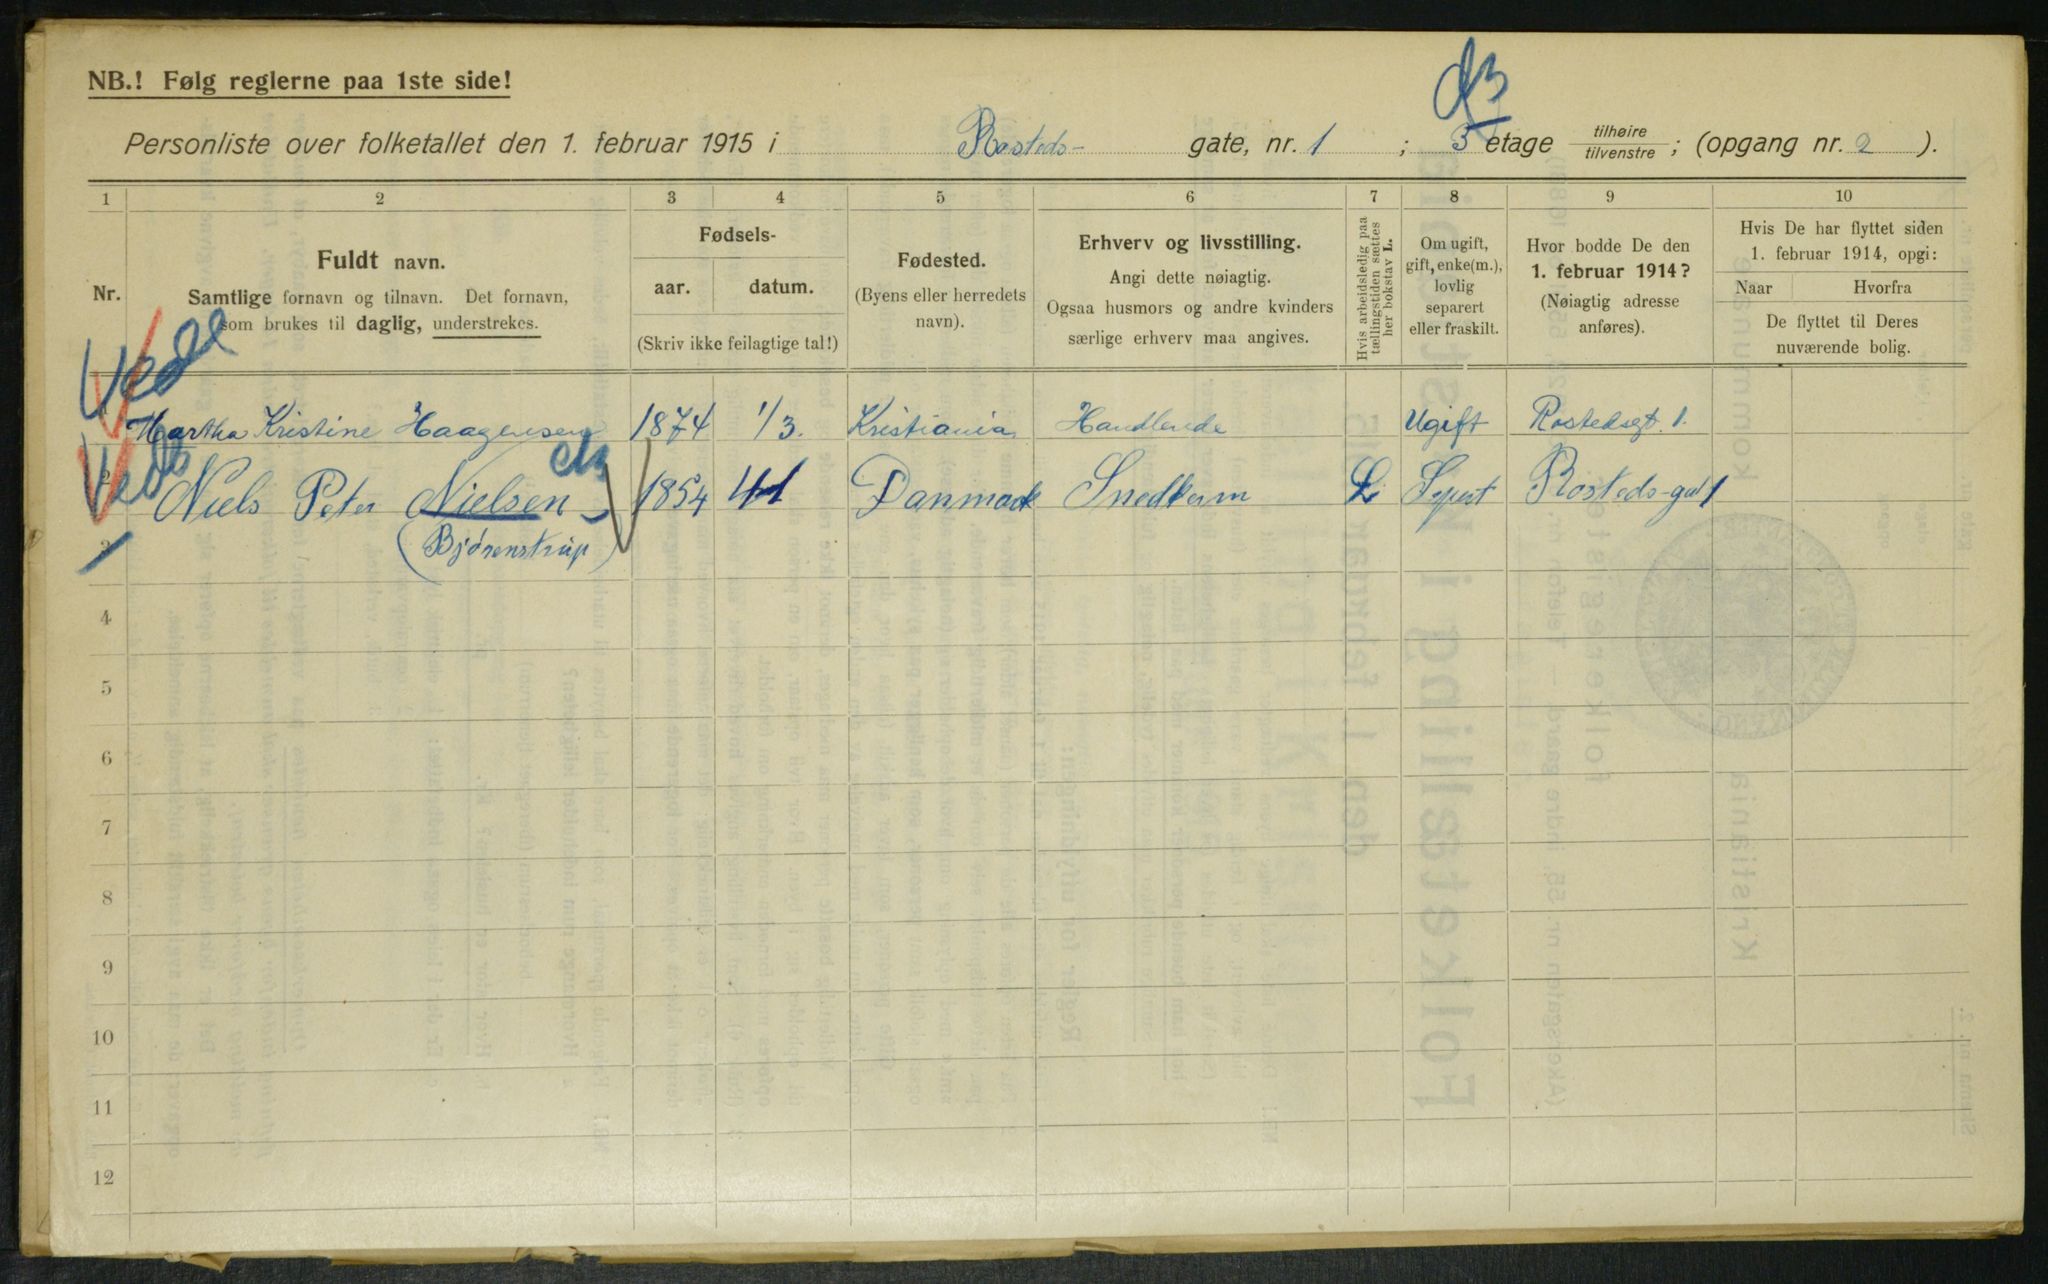 NB.! Følg reglerne paa 1ste side!
Personliste over folketallet den 1. februar 1915 i Rosteds- gate, nr. 1 ; 3 etage tilhøire / tilvenstre ; (opgang nr. 2 ).
1 2 3 4 5 6 7 8 9 10
Nr.
Fuldt navn.
Samtlige fornavn og tilnavn. Det fornavn,
som brukes til daglig, understrekes.
Fødsels-
aar. datum.
(Skriv ikke feilagtige tal!)
Fødested.
(Byens eller herredets
navn).
Erhverv og livsstilling.
Angi dette nøiagtig.
Ogsaa husmors og andre kvinders
særlige erhverv maa angives.
Hvis arbeidsledig paa
tællingstiden sættes
her bokstav L.
Om ugift,
gift, enke(m.),
lovlig
separert
eller fraskilt.
Hvor bodde De den
1. februar 1914?
(Nøiagtig adresse
anføres).
Hvis De har flyttet siden
1. februar 1914, opgi:
Naar Hvorfra
De flyttet til Deres
nuværende bolig.
Martha Kristine Haagensen 1874 1/3. Kristiania Handlende Ugift Rostedsgt. 1.
2 Niels Peter Nielsen 1854 Danmark L Rosteds-gat 1
3 (Bjørenstrup)
4
5
6
7
8
9
10
11
12